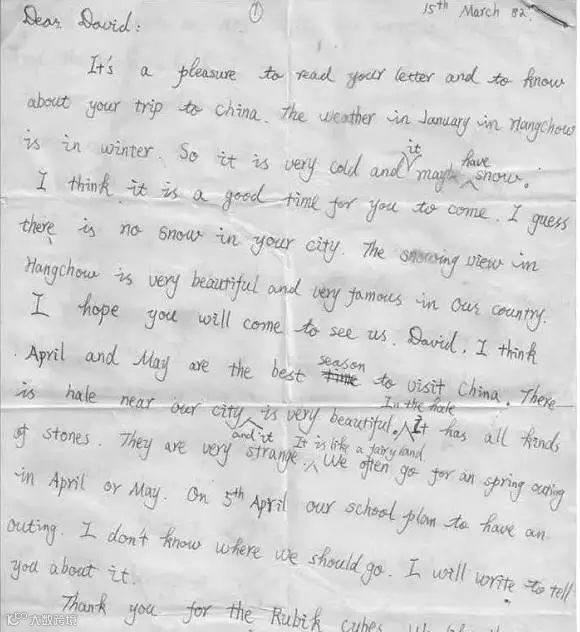 ① 15th March 82.
Dear David:
It's a pleasure to read your letter and to know
about your trip to China. The weather in January in Hangchow
is in winter. So it is very cold and it maybe have snow.
I think it is a good time for you to come. I guess
there is no snow in your city. The snowing view in
Hangchow is very beautiful and very famous in our country.
I hope you will come to see us. David, I think
April and May are the best season to visit China. There
is hale near our city and it is very beautiful. In the hale It has all kinds
of stones. They are very strange. It is like a fairyland We often go for an spring outing
in April or May. On 5th April our school plan to have an
outing. I don't know where we should go. I will write to tell
you about it.
Thank you for the Rubik cubes.